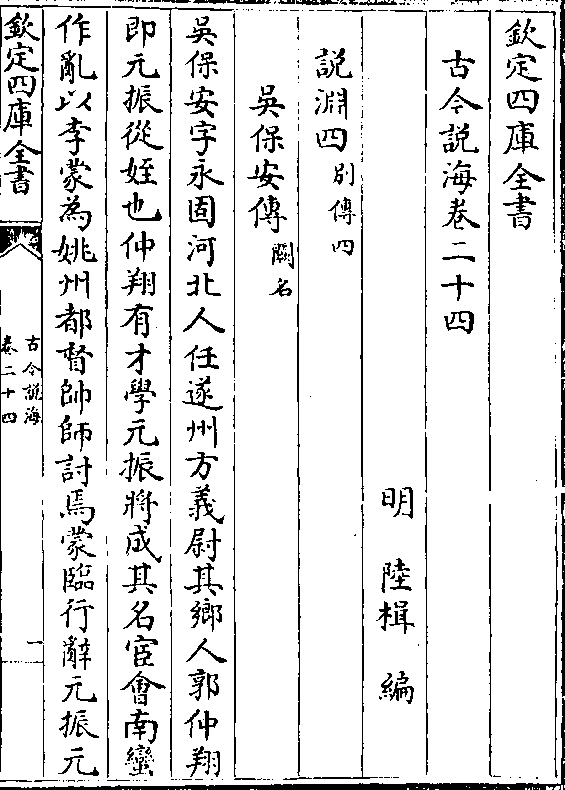 欽定四庫全書
古今説海卷二十四
明 陸楫 編
説淵四 别傳四
吳保安傳 闕名
吳保安字永固河北人任遂州方義尉其鄉人郭仲翔
即元振從姪也仲翔有才學元振將成其名宦會南蠻
作亂以李蒙為姚州都督帥師討焉蒙臨行辭元振元
欽定四庫全書
古今説海
卷二十四
一